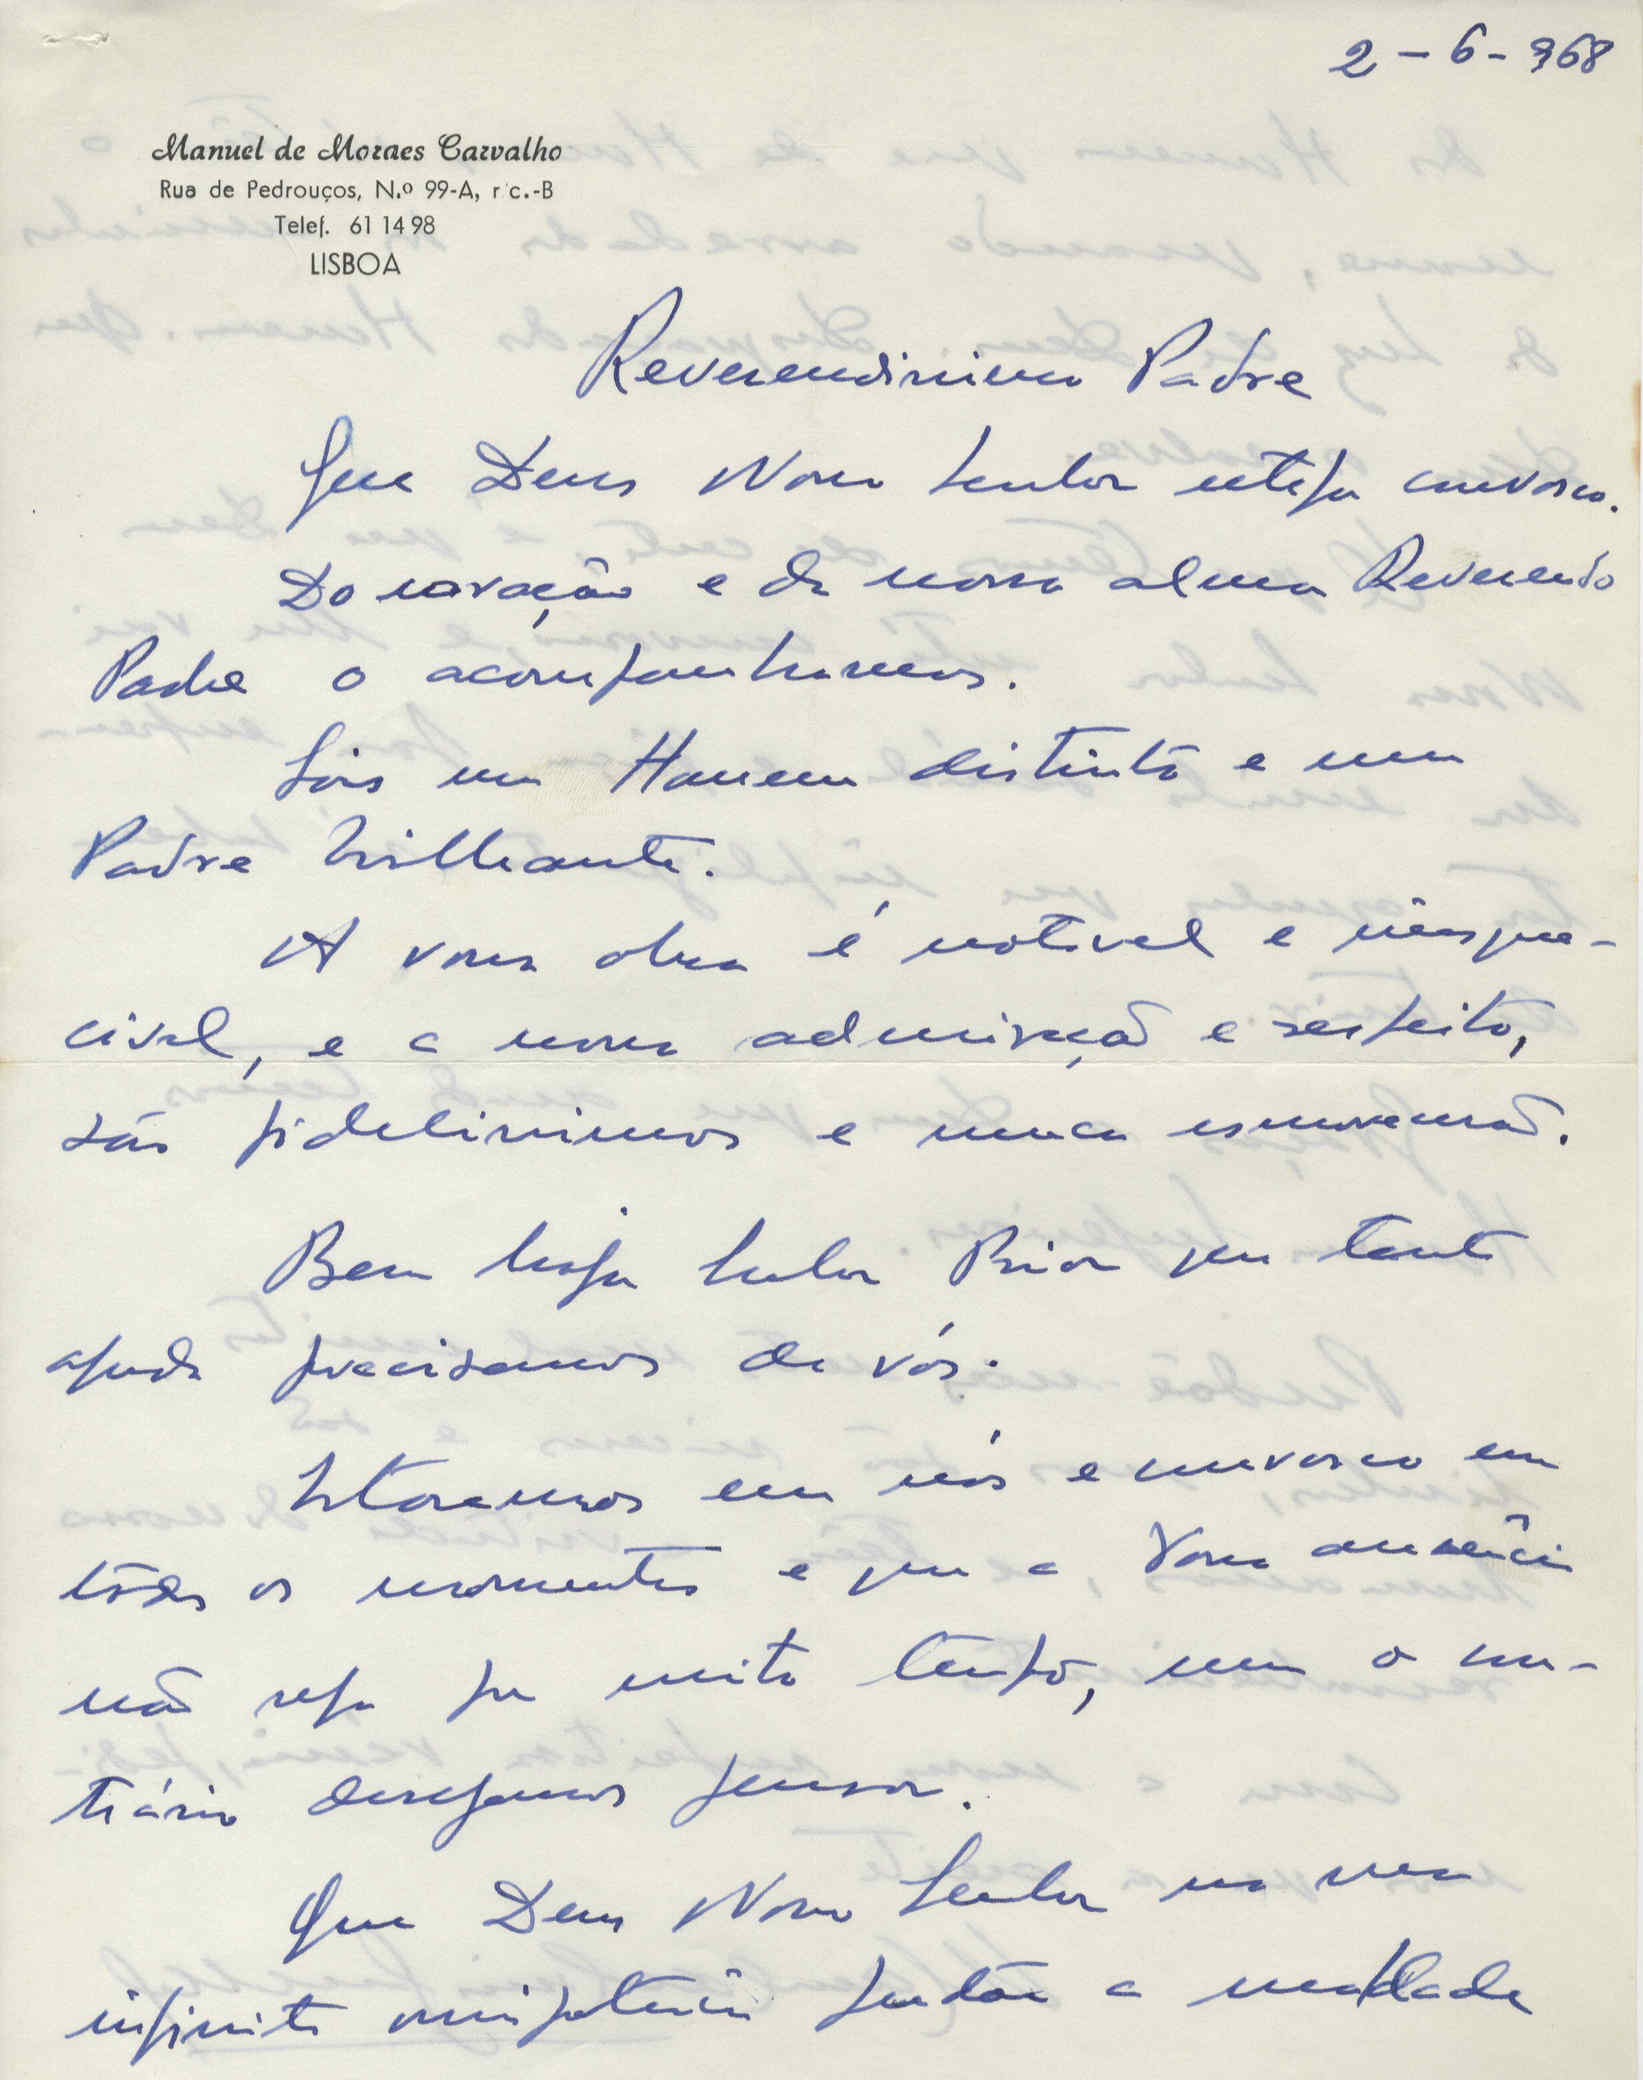 2-6-968
Manuel de Moraes Carvalho
Rua de Pedrouços, N.º 99-A, r/c.-B
Telef. 61 14 98
LISBOA
Reverendissimo Padre
Que Deus Nosso Senhor esteja convosco.
Do coração e da nossa alma Reverendo
Padre o acompanhamos.
Sois um Homem distinto e um
Padre brilhante.
A vossa obra é notavel e inesque-
civel, e a nossa admiração e respeito,
são fidelissimos e nunca esmorecerão.
Bem haja Senhor Prior que tanto
ajuda precisamos de vós.
Estaremos em nós e convosco em
todos os momentos e que a Vossa ausência
não seja por muito tempo, nem o con-
trário desejamos pensar.
Que Deus Nosso Senhor na sua
infinita omnipotência perdôe a maldade